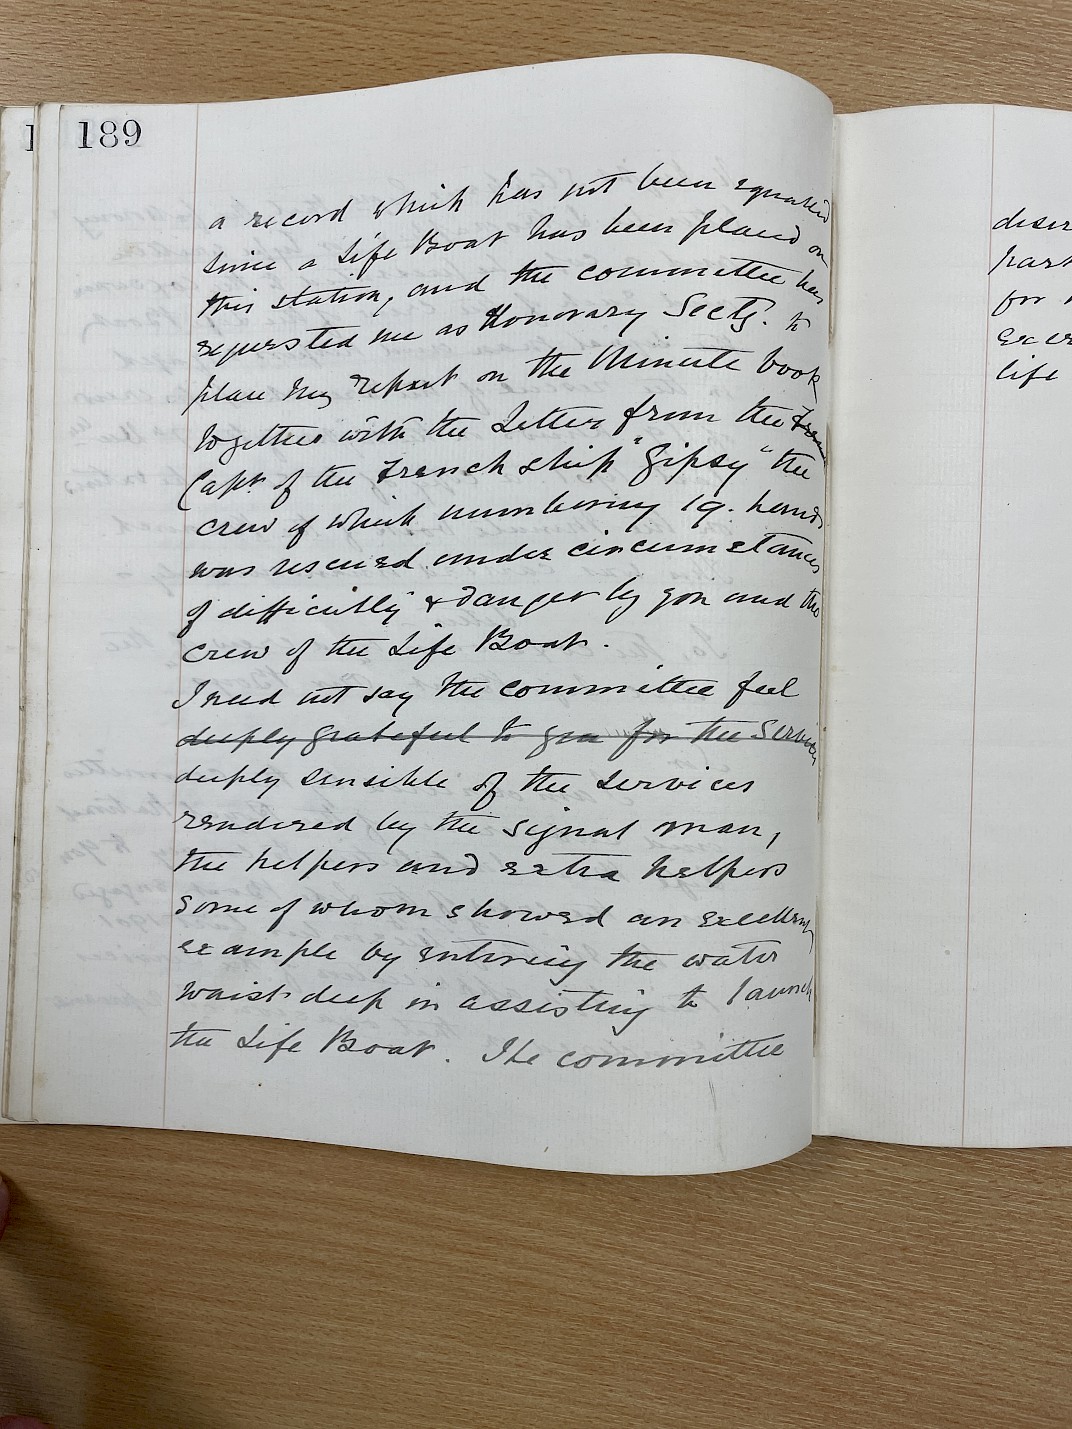 189
a record which has not been equalled
since a Life Boat has been placed on
this station, and the committee has
requested me as Honorary Secty. to
place my report on the Minute book
together with the Letter from the
Capt. of the French ship "Gipsy" the
crew of which numbering 19. hands
was rescued under circumstances
of difficulty & danger by you and the
crew of the Life Boat.
I need not say the committee feel
deeply grateful to you for the services
deeply sensible of the services
rendered by the signal man,
the helpers and extra helpers
some of whom showed an excellent
example by entering the water
waist deep in assisting to launch
the Life Boat. The committee
for
life